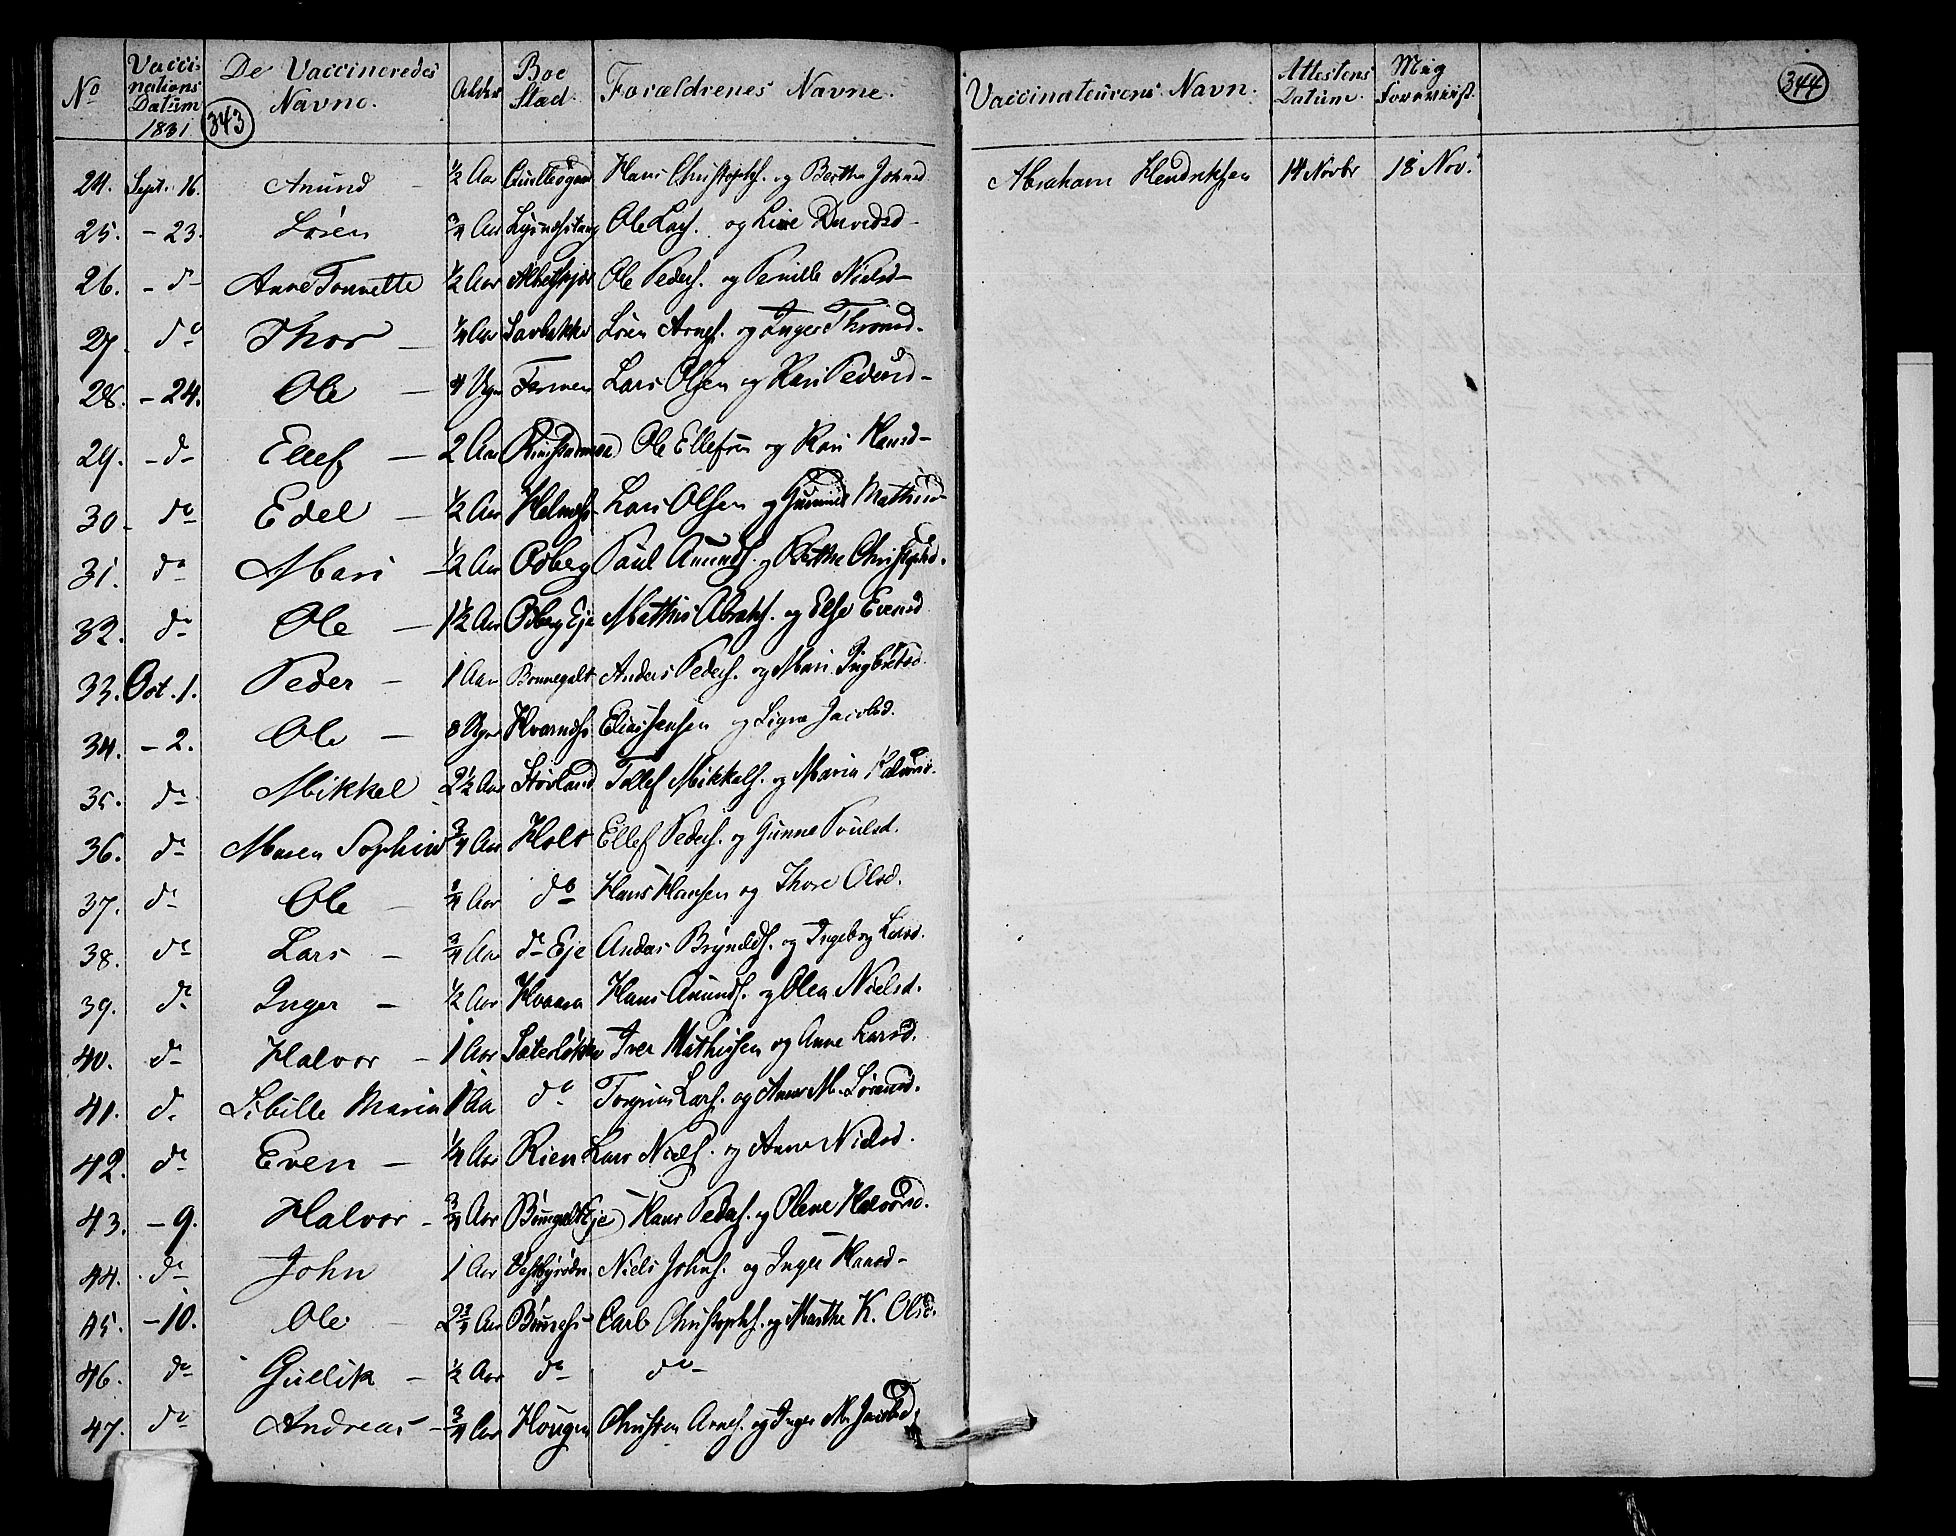 No | Vaccinations Datum 1831 | De Vaccineredes Navne. | Alder | Boe Stæd. | Forældrenes Navne. | Vaccinateurens Navn. | Attestens Datum. | Mig Foreviist.
343
344
24. Sept. 16. Anund - 1/2 Aar Hans Christophs. og Berthe Johnsd. Abraham Hendriksen 14 Novbr 18 Nov.
25. - 23. Sören 3/4 Aar Ole Lars. og Live Davidsd-
26. - do- Anne Tonnette 1/2 Aar Ole Peders. og Pernille Nielsd-
27. do Thor - 1/4 Aar Sören Arnes. og Inger Thronsd-
28. - 24. Ole - 4 Ugr Formen Lars Olsen og Kari Pedersd-
29. - do- Ellef - 2 Aar Ole Ellefsen og Kari Hansd-
30- do Edel - 1/2 Aar Lars Olsen og Gunnild Mathisd-
31. do Mari - 1/2 Aar Odberg Paul Anunds. og Berthe Christophsd.
32. do Ole - 1 1/2 Aar Odberg Eje Mathis Abrahs. og Else Evensd
33. Oct. 1. Peder - 1 Aar Anders Peders. og Mari Ingbretsd.
34. - 2. Ole - 8 Ugr Elias Jensen og Signe Jacobsd.
35. do Mikkel 2 1/2 Aar Støvland Tollef Mikkels. og Maria
36. do Maren Sophie 3/4 Aar Holt Ellef Peders. og Gunne Poulsd.
37. do Ole - 3/4 Aar do Hans Hansen og Thore Olsd.
38. do Lars - 3/4 Aar do Eje Anders Brynilds. og Ingeborg Larsd.
39. do Inger - 1/2 Aar Hvaara Hans Anunds. og Olea Nielsd.
40. do Halvor - 1 Aar Sæterløkke Iver Mathissen og Anne Larsd.
41. do Sibille Maria 1 Aar do Torgrim Lars. og Anne M. Sörensd.
42. do Even - 1/4 Aar Rien Lars Niels. og Anne Nielsd.
43. - 9. Halvor - 3/4 Aar Hans Peders. og Olene Halvorsd.
44. do John 1 Aar Niels Johns. og Inger Hansd-
45. - 10. Ole 2 3/4 Aar Carl Christophs. og Marthe K. Olsd.
46. do Gullik - 1/2 Aar do do-
47. do Andreas - 3/4 Aar Hougen Christen Arnes. og Inger M. Jacobsd.